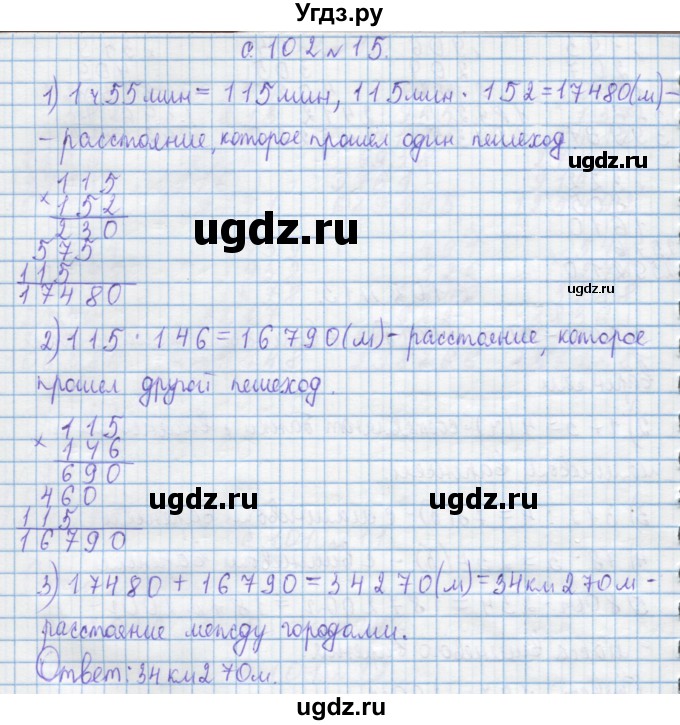 Угдз.ру
с. 102 № 15.
1) 1ч 55мин = 115мин, 115мин · 152 = 17480(м) -
- расстояние, которое прошел один пешеход
ugdz.ru
115
× 152
230
ugdz.ru
575
115
ugdz.ru
17480
2) 115 · 146 = 16790(м) - расстояние, которое
прошел другой пешеход.
115
× 146
690
ugdz.ru
460
ugdz.ru
115
16790
3) 17480 + 16790 = 34270(м) = 34км 270м -
расстояние между городами.
ugdz.ru
Ответ: 34 км 270м.
ugdz.ru